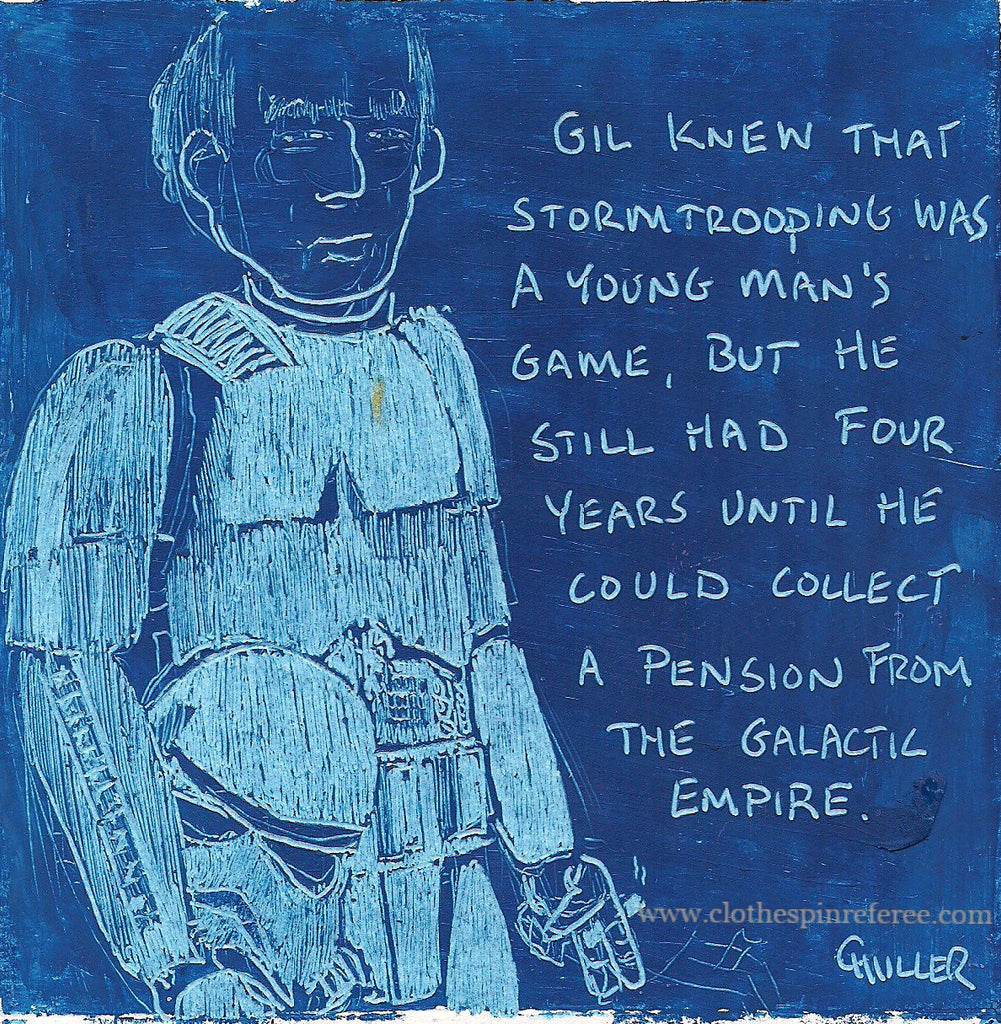 GIL KNEW THAT
STORMTROOPING WAS
A YOUNG MAN'S
GAME, BUT HE
STILL HAD FOUR
YEARS UNTIL HE
COULD COLLECT
A PENSION FROM
THE GALACTIC
EMPIRE.
www.clothespinreferee.com